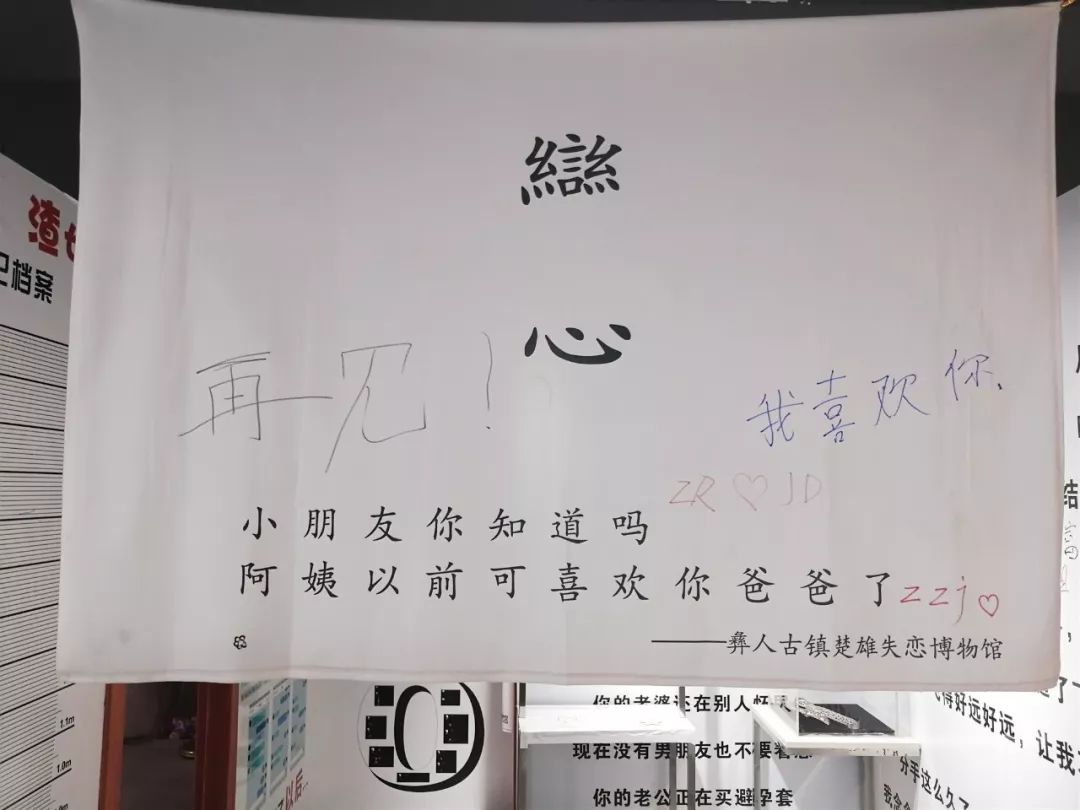 䜌
心
再见！
我喜欢你、
ZR♡JD
小朋友你知道吗
阿姨以前可喜欢你爸爸了
zzj♡
———彝人古镇楚雄失恋博物馆
渣
档案
1.1m
1.0m
了以后...
你的老婆还在别人怀
现在没有男朋友也不要着急
你的老公正在买避孕套
结
得好远好远，让我
分手这么久了